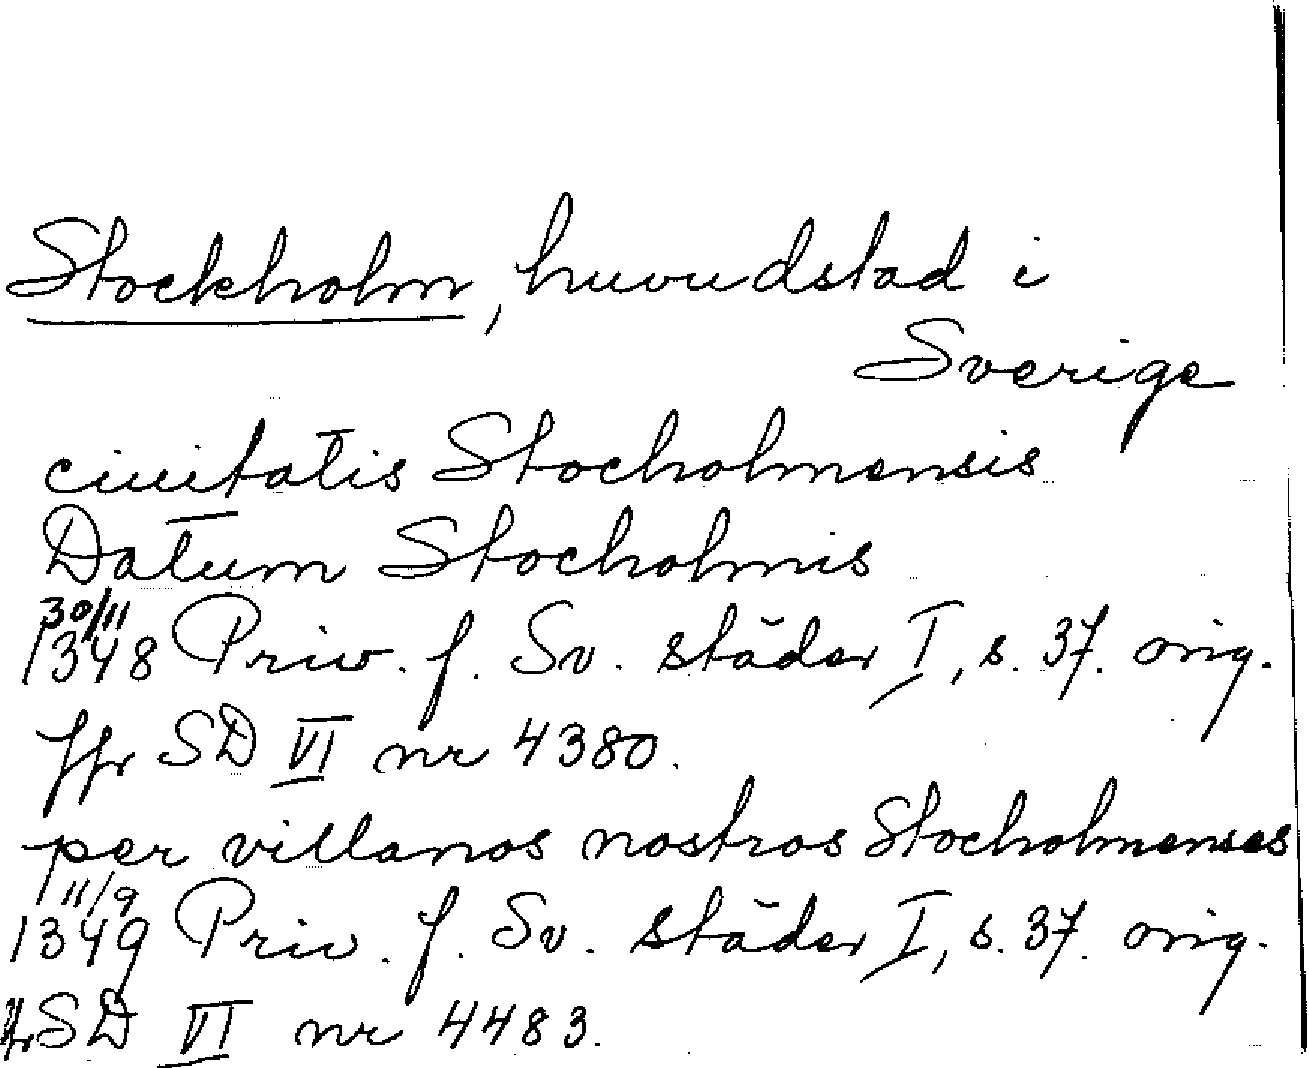 Stockholm, huvudstad i
Sverige
ciuitatis Stocholmensis
Datum Stocholmis
30/11
1348 Priv. f. Sv. städer I, s. 37. orig.
Jfr SD VI nr 4380.
per villanos nostros Stocholmenses
11/9
1349 Priv. f. Sv. städer I, s. 37. orig.
Jfr SD VI nr 4483.